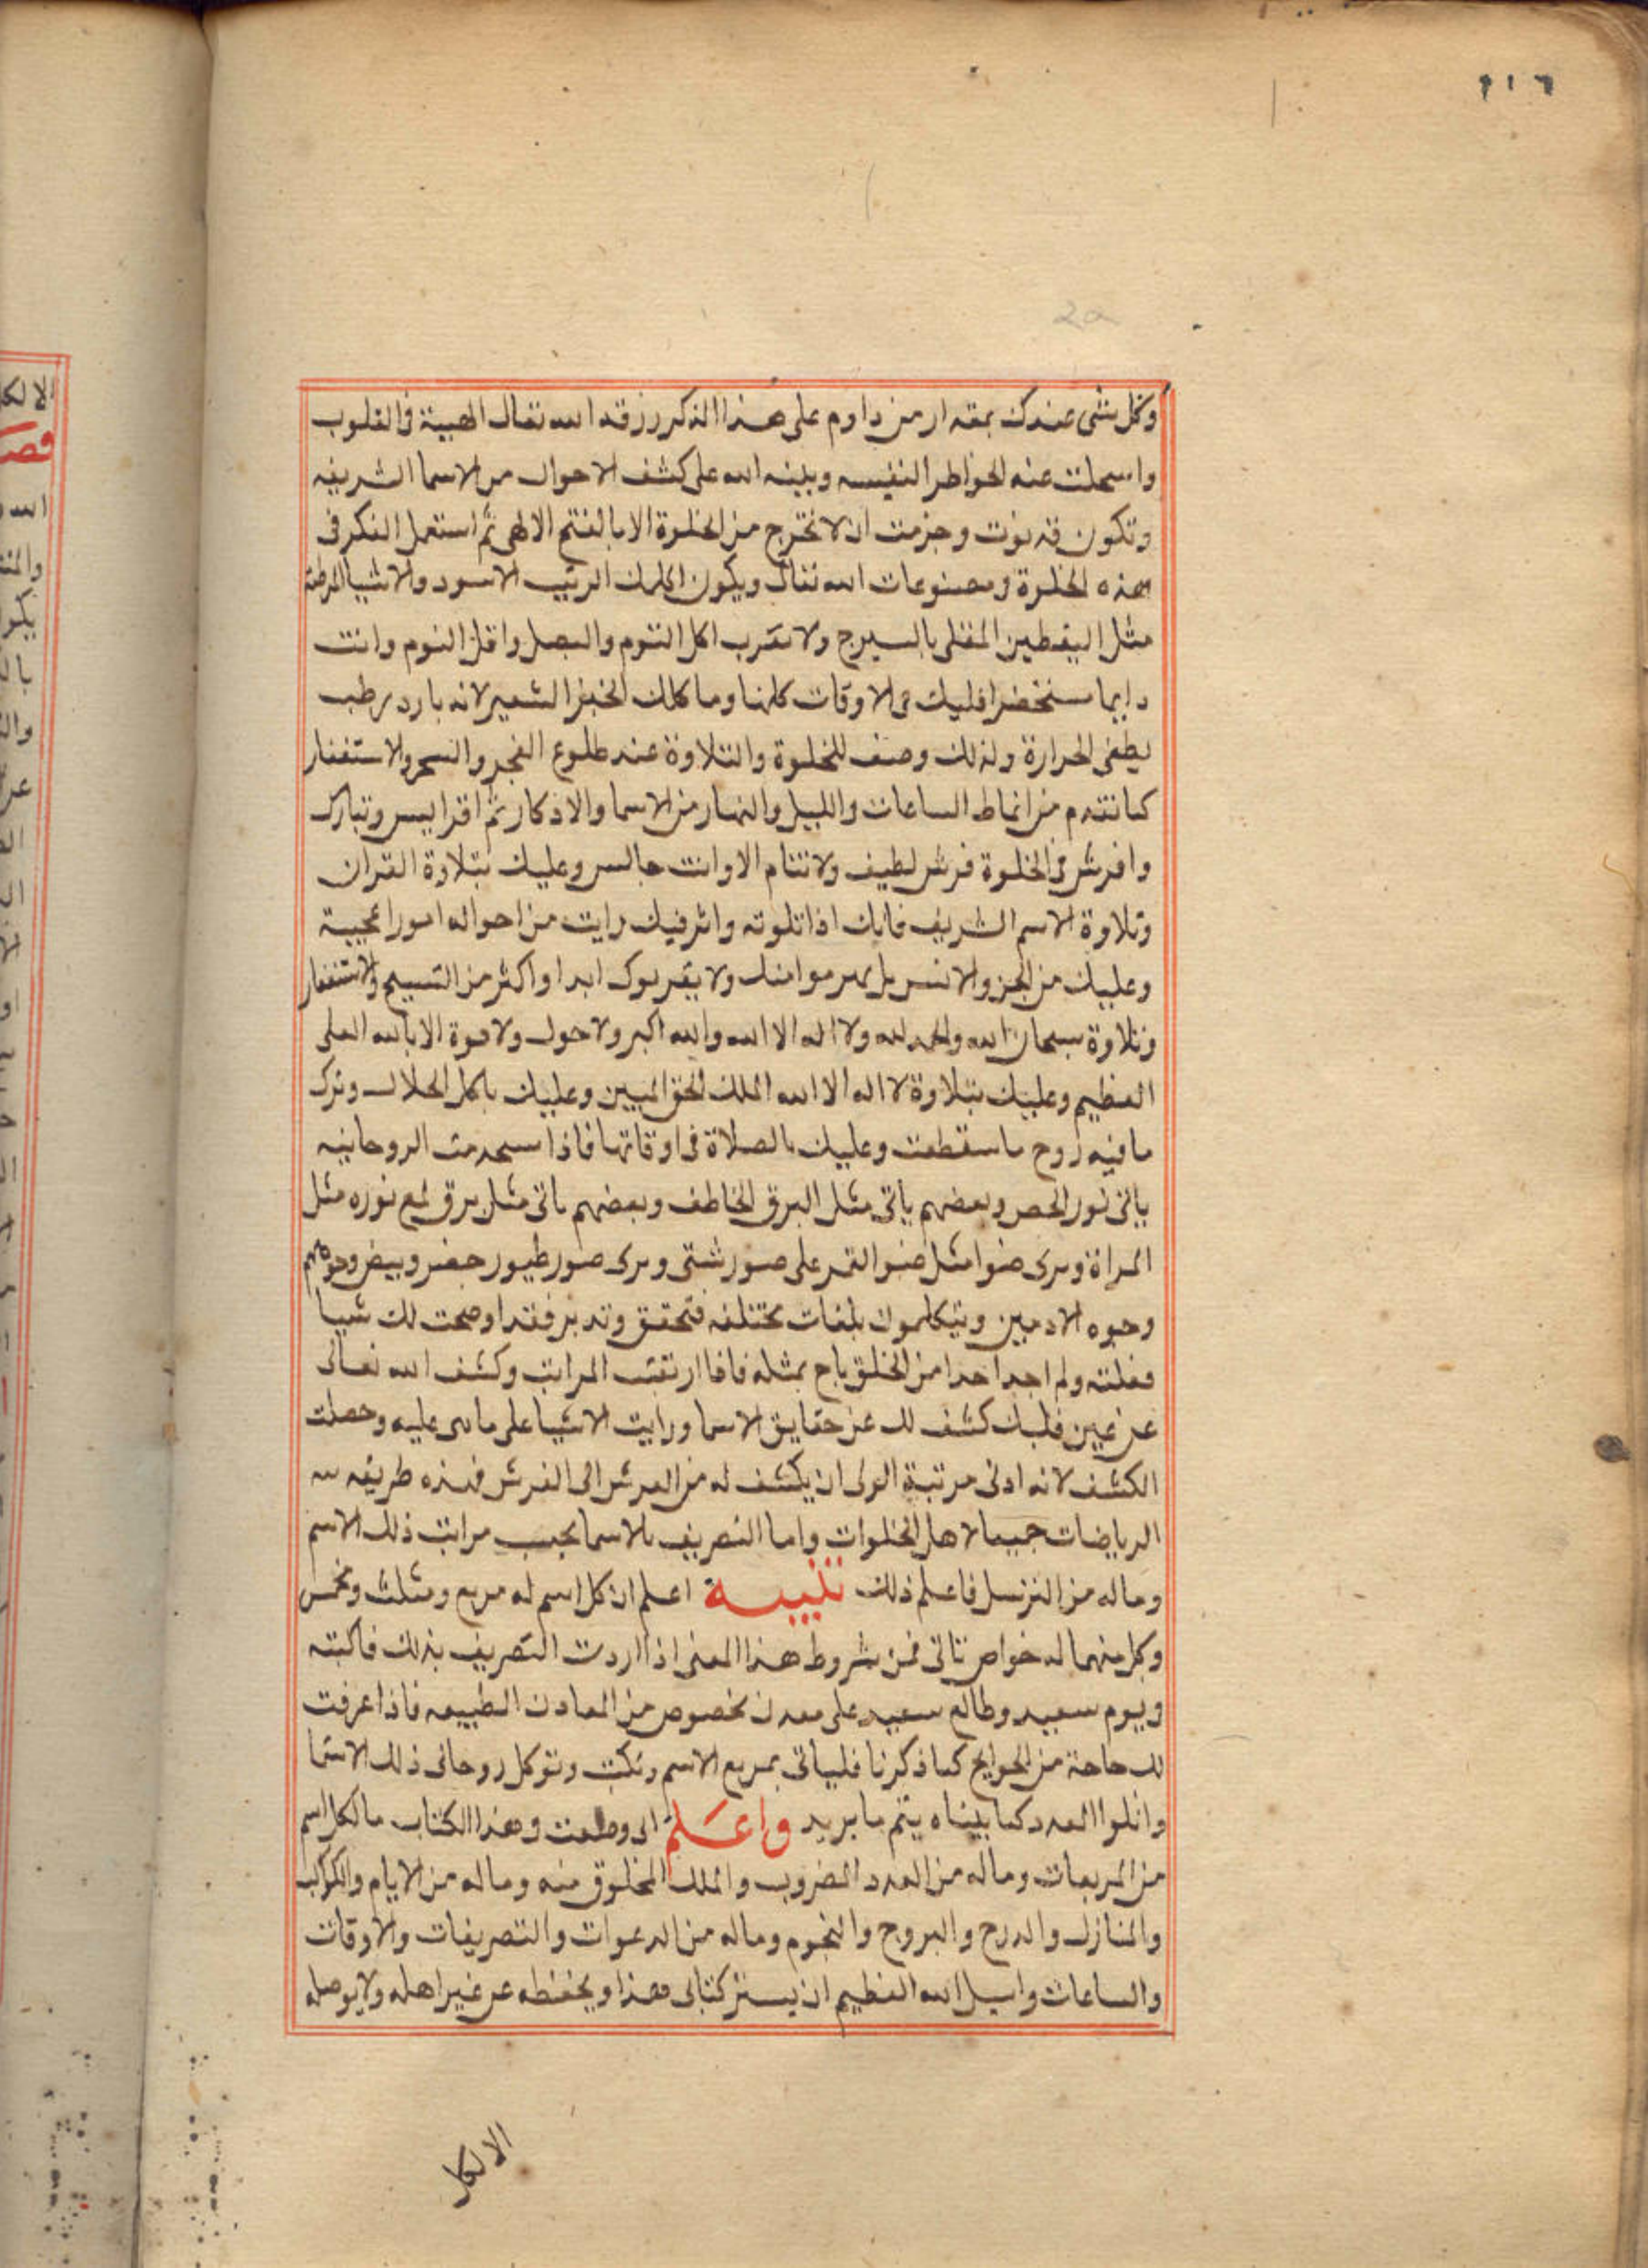 ٢١٦
2a
وكل شى عندك بمقدار من داوم على هذا الذكر رزقه الله تعالى الهيبة فى القلوب
عنه الخواطر النفيسه الله على كشف الاحوال من الاسما الشريفه
وتكون قد نويت وجزمت ان لا تخرج من الخلوة الا بالفتح الالهى ثم استعمل الفكر فى
هذه الخلوة ومصنوعات الله تعالى ويكون الزبيب الاسود والاشيا
مثل اليقطين المقلى بالسيرج ولا تقرب اكل الثوم والبصل واقل النوم وانت
دايما مستحضرا قلبك فى الاوقات كلها وما كلك الخبز الشعير لانه بارد رطب
يطفى الحرارة ولذلك وصف للخلوة والتلاوة عند طلوع الفجر والسحر والاستغفار
كما تقدم من انماط الساعات والليل والنهار من الاسما والاذكار ثم اقرا يس وتبارك
وافرش فى الخلوة فرش لطيف ولا تنام الا وانت جالس وعليك بتلاوة القران
وتلاوة الاسم الشريف فانك اذا تلوته واثر فيك رايت من احواله امورا عجيبة
وعليك من الجن والانس بل ولا يقربوك ابدا واكثر من التسبيح والاستغفار
وتلاوة سبحان الله والحمد لله ولا اله الا الله والله اكبر ولا حول ولا قوة الا بالله العلى
العظيم وعليك بتلاوة لا اله الا الله الملك الحق المبين وعليك باكل الحلال وترك
ما فيه روح ما ستطعت وعليك بالصلاة فى اوقاتها فاذا الروحانيه
ياتى نور الحص وبعضهم ياتى مثل البرق الخاطف وبعضهم ياتى مثل برق لمع نوره مثل
المراة وترى ضوا مثل ضو القمر على صور شتى وترى صور طيور خضر وبيض وجوههم
وجوه الادميين ويتكلموك بلغات مختلفه فتحقق وتدبر فقد اوضحت لك شيا
فعلته ولم اجد احدا من الخلق باح بمثله فاذا ارتقت المراتب وكشف الله تعالى
عن عين قلبك كشف لك عن حقايق الاسما ورايت الاشيا على ما هى عليه وحصلت
الكشف لانه ادنى مرتبة الولى ان يكشف له من العرش الى الفرش فهذه طريقه
الرياضات جميعا لاهل الخلوات واما التصريف بالاسما بحسب مراتب ذلك الاسم
وما له من فاعلم ذلك تنبيه اعلم ان كل اسم له مربع ومثلث ومخمس
وكل منهما له خواص تاتى فمن شروط هذا المعنى اذا اردت التصريف بذلك فاكتبه
ويوم سعيد وطالع سعيد على معدن مخصوص من المعادن الطبيعه فاذا عرفت
لك حاجة من الحوايج كما ذكرنا فلياتى بمربع الاسم وتكتب وتوكل روحانى ذلك الاسما
واتلوا العدد كما بيناه يتم ما يريد واعلم انى وضعت وهذا الكتاب ما لكل اسم
من المربعات وما له من العدد المضروب والملك المخلوق منه وما له من الايام والكواكب
والمنازل والدرج والبروج والنجوم وما له من الدعوات والتصريفات والاوقات
والساعات واسيل الله العظيم ان يستر كتابى هذا ويحفظه عن غير اهله ولا يوصله
الا لكل